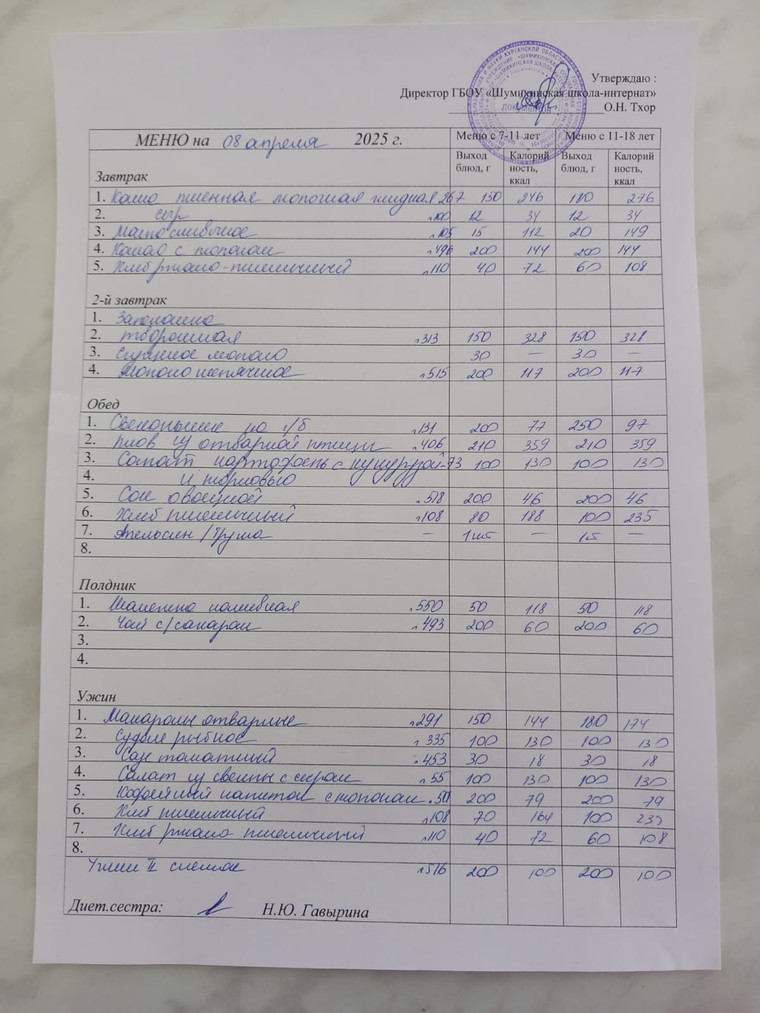 Утверждаю :
Директор ГБОУ «Шумихинская школа-интернат»
О.Н. Тхор
МЕНЮ на 08 апреля 2025 г. Меню с 7-11 лет Меню с 11-18 лет
Завтрак Выход блюд, г Калорий ность, ккал Выход блюд, г Калорий ность, ккал
1. Каша пшенная молочная жидкая 267 150 246 180 276
2. сыр №100 12 34 12 34
3. Масло сливочное №105 15 112 20 149
4. Какао с молоком №496 200 144 200 144
5. Хлеб ржано-пшеничный №110 40 72 60 108
2-й завтрак
1. Запеканка
2. творожная №313 150 328 150 328
3. сгущеное молоко 30 — 30 —
4. Молоко кипяченое №515 200 117 200 117
Обед
1. Свекольник на к/б №131 200 77 250 97
2. плов из отварной птицы №406 210 359 210 359
3. Салат картофель с кукурузой №73 100 130 100 130
4. и морковью
5. Сок овощной №518 200 46 200 46
6. Хлеб пшеничный №108 80 188 100 235
7. Апельсин/Груша — 1шт — 1шт —
8.
Полдник
1. наливная №550 50 118 50 118
2. Чай с/сахаром №493 200 60 200 60
3.
4.
Ужин
1. Макароны отварные №291 150 144 180 174
2. Суфле рыбное №335 100 130 100 130
3. Соус томатный №453 30 18 30 18
4. Салат из свеклы с сыром №55 100 130 100 130
5. Кофейный напиток с молоком №501 200 79 200 79
6. Хлеб пшеничный №108 70 164 100 235
7. Хлеб ржано пшеничный №110 40 72 60 108
8.
Ужин II №516 200 100 200 100
Диет.сестра: Н.Ю. Гавырина